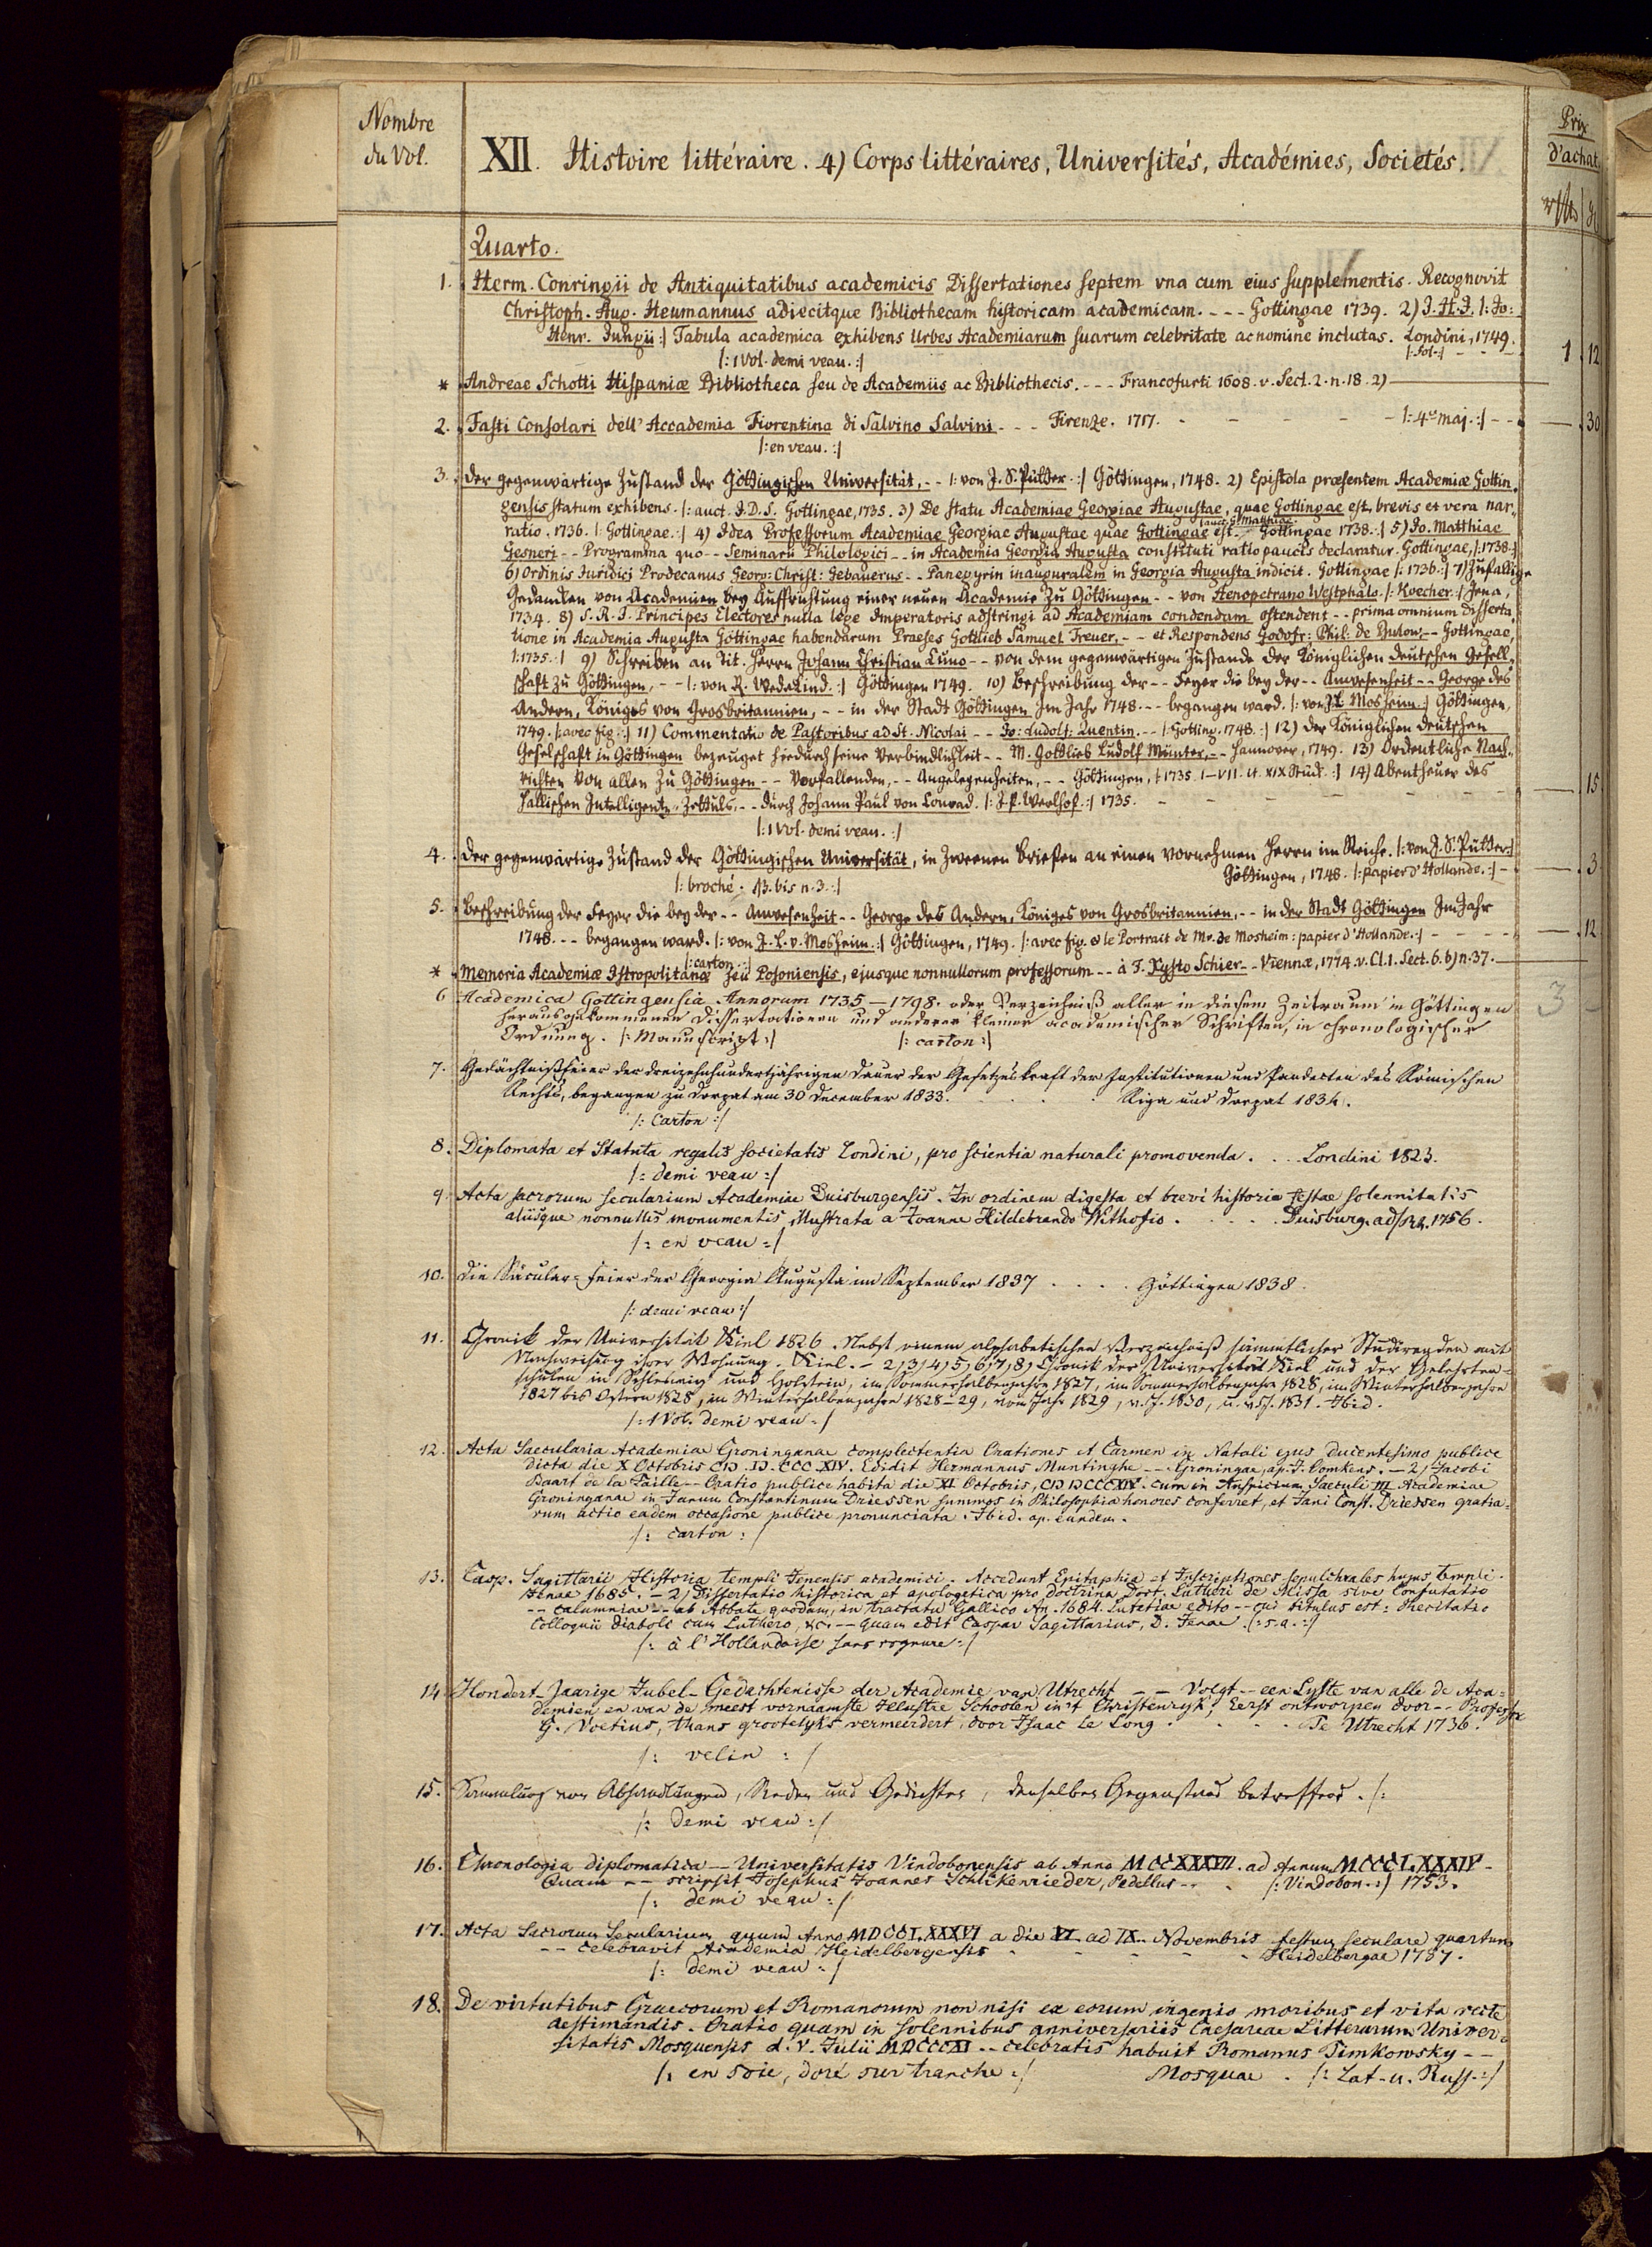 Nombre
du Vol.
XII. Histoire littéraire. 4) Corps littéraires, Universités, Académies, Societés.
Prix
d'achat
Quarto.
1. Herm. Conringii de Antiquitatibus academicis Dissertationes septem vna cum eius supplementis. Recognovit
Christoph. Aug. Heumannus adiecitque Bibliothecam historicam academicam. - - - Gottingae 1739. 2) J. H. J. |: Jo:
Henr. Jungii :| Tabula academica exhibens Urbes Academiarum suarum celebritate ac nomine inclutas. Londini, 1749.
|: 1 Vol. demi veau. :| |: Fol. :| 1 12
* Andreae Schotti Hispaniæ Bibliotheca seu de Academiis ac Bibliothecis. - - - Francofurti 1608. v. Sect. 2. n. 18. 2)
2. Fasti Consolari dell' Accademia Fiorentina di Salvino Salvini - - - Firenze. 1717. - - - |: 4to maj. :| - - 30
|: en veau. :|
3. Der gegenwärtige Zustand der Göttingischen Universität, - - |: von J. S. Pütter. :| Göttingen, 1748. 2) Epistola præsentem Academiæ Gottin-
gensis statum exhibens. |: auct. J. D. S. Gottingae, 1735. 3) De statu Academiae Georgiae Augustae, quae Gottingae est, brevis et vera nar-
ratio. 1736. |: Gottingae. :| 4) Idea Professorum Academiae Georgiae Augustae quae Gottingae est. |: auct. G. Matthiae. Gottingae 1738. :| 5) Jo. Matthiae
Gesneri - - Programma quo - - Seminarii Philologici - - in Academia Georgia Augusta constituti ratio paucis declaratur. Gottingae, |: 1738. :|
6) Ordinis Iuridici Prodecanus Georg: Christ: Gebauerus - - Panegyrin inauguralem in Georgia Augusta indicit. Gottingae |: 1736. :| 7) Zufällige
Gedancken von Academien bey Auffrichtung einer neuen Academie zu Göttingen - - von Stenopetrano Westphalo. |: Koecher. :| Jena,
1734. 8) S. R. I. Principes Electores nulla lege Imperatoris adstringi ad Academiam condendam ostendent - - prima omnium disserta-
tione in Academia Augusta Göttingae habendarum Praeses Gottlieb Samuel Treuer, - - et Respondens Godofr: Phil: de Bulow, - - Gottingae,
|: 1735. :| 9) Schreiben an Tit. Herrn Johann Christian Cuno - - von dem gegenwärtigen Zustande der Königlichen deutschen Gesell-
schaft zu Göttingen, - - |: von R. Wedekind. :| Göttingen 1749. 10) Beschreibung der - - Feyer die bey der - - Anwesenheit - - George des
Andern, Königes von Grosbritannien, - - in der Stadt Göttingen Im Jahr 1748. - - begangen ward. |: von J. L. Mosheim :| Göttingen,
1749. |: avec fig. :| 11) Commentatio de Pastoribus ad St. Nicolai - - Jo: Ludolf: Quentin. - - |: Gotting. 1748. :| 12) Der Königlichen deutschen
Gesellschaft in Göttingen bezeuget hiedurch seine Verbindlichkeit - - M. Gottlieb Ludolf Münter, - - Hannover, 1749. 13) Ordentliche Nach-
richten von allen zu Göttingen - - vorfallenden, - - Angelegenheiten, - - Göttingen, |: 1735. I-VII. et XIX Stück. :| 14) Abentheuer des
Hallischen Intelligentz-Zettuls, - - durch Johann Paul von Lonrad. |: J. P. Werlhof. :| 1735. - - - 15
|: 1 Vol. demi veau. :|
4. Der gegenwärtige Zustand der Göttingischen Universität, in Zweenen Briefen an einen vornehmen Herrn im Reiche. |: von J. S. Pütter :|
Göttingen, 1748. |: papier d'Hollande. :| - 3
|: broché. 1). bis n. 3. :|
5. Beschreibung der Feyer die bey der - - Anwesenheit - - George des Andern, Königes von Grosbritannien, - - in der Stadt Göttingen Im Jahr
1748. - - begangen ward. |: von J. L. v. Mosheim. :| Göttingen, 1749. |: avec fig. & le Portrait de Mr. de Mosheim: papier d'Hollande. :| - - - 12
|: carton. :|
* Memoria Academiæ Istropolitanæ seu Posoniensis, ejusque nonnullorum professorum - - à F. Xysto Schier - - Viennæ, 1774. v. Cl. 1. Sect. 6. b) n. 37.
6 Academica Gottingensia Annorum 1735-1798. oder Verzeichniß aller in diesem Zeitraum in Göttingen
herausgekommenen Dissertationen und anderer kleiner academischer Schriften, in chronologischer
Ordnung. |: Manuscript :| |: carton :| 3
7. Gedächtnißfeier der dreizehnhundertjährigen Dauer der Gesetzeskraft der Institutionen und Pandecten des Römischen
Rechts, begangen zu Dorpat am 30 December 1833. . . . Riga und Dorpat 1834.
|: Carton :|
8. Diplomata et Statuta regalis societatis Londini, pro scientia naturali promovenda. . . Londini 1823.
|: demi veau :|
9. Acta sacrorum secularium Academiae Duisburgensis. In ordinem digesta et brevi historia festae solennitatis
aliisque nonnullis monumentis illustrata a Joanne Hildebrando Withofio . . . . . Duisburg. ad Rh. 1756.
|: en veau :|
10. Die Säcular-Feier der Georgia Augusta im September 1837 . . . . Göttingen 1838.
|: demi veau :|
11. Chronik der Universität Kiel 1826. Nebst einem alphabetischen Verzeichniß sämmtlicher Studirenden mit
Nachweisung ihrer Wohnung. Kiel. - 2,3,4,5,6,7,8) Chronik der Universität Kiel und der Gelehrten-
schulen in Schleswig und Holstein, im Sommerhalbenjahre 1827, im Sommerhalbenjahre 1828, im Winterhalbenjahre
1827 bis Ostern 1828, im Winterhalbenjahre 1828-29, vom Jahr 1829, v. J. 1830, u. v. J. 1831. Ibid.
|: 1 Vol. demi veau :|
12. Acta Saecularia Academiae Groninganae complectentia Orationes et Carmen in Natali ejus ducentesimo publice
dicta die X Octobris CIↃ.IↃ.CCC.XIV. Edidit Hermannus Muntinghe - - Groningae, ap. J. Oomkens. - 2) Jacobi
Baart de la Faille - - Oratio publice habita die XI Octobris, CIↃ IↃ CCCXIV. cum in Auspicium Saeculi III Academiae
Groninganae in Janum Constantinum Driessen summos in Philosophia honores conferret, et Jani Const. Driessen gratia-
rum actio eadem occasione publice pronunciata. Ibid. ap. eundem.
|: carton :|
13. Casp. Sagittarii Historia templi Jenensis academici. Accedunt Epitaphia et Inscriptiones sepulchrales hujus templi.
Jenae 1685. - 2) Dissertatio historica et apologetica pro doctrina Doct. Lutheri de Missa sive Confutatio
- - calumniae - - ab Abbate quodam, in tractatu Gallico An. 1684. Lutetiae edito - - cui titulus est: Recitatio
Colloquii diaboli cum Luthero, &c. - - quam edit Caspar Sagittarius, D. Jenae. |: s. a. :|
|: à l'Hollandaise sans rognure :|
14. Hondert-Jaarige Jubel-Gedachtenisse der Academie van Utrecht - - Volgt - - een Lyste van alle de Aca-
demien en van de meest vornaamste Illustre Schoolen in't Christenryk, Eerst ontworpen door - - Professor
G. Voetius, thans grootelyks vermeerdert, door Isaac le Long . . . . Te Utrecht 1736.
|: velin :|
15. Sammlung von Abhandlungen, Reden und Gedichten, denselben Gegenstand betreffend. |:
|: Demi veau :|
16. Chronologia diplomatica - - Universitatis Vindobonensis ab Anno MCCXXXVII. ad Annum MCCCLXXXIV -
Quam - - scripsit Josephus Joannes Schlikenrieder, Pedellus - - . |: Vindobon. :| 1753.
|: demi veau :|
17. Acta Sacrorum Secularium quum Anno MDCCLXXXVI a die VI. ad IX. Novembris festum seculare quartum
- - celebravit Academia Heidelbergensis - - - - Heidelbergae 1787.
|: demi veau :|
18. De virtutibus Graecorum et Romanorum non nisi ex eorum ingenio moribus et vita recte
aestimandis. Oratio quam in solennibus anniversariis Caesareae Litterarum Univer-
sitatis Mosquensis d. V. Julii MDCCCXI - - celebratis habuit Romanus Timkowsky - -
|: en soie, doré sur tranche :| Mosquae. |: Lat. u. Russ. :|